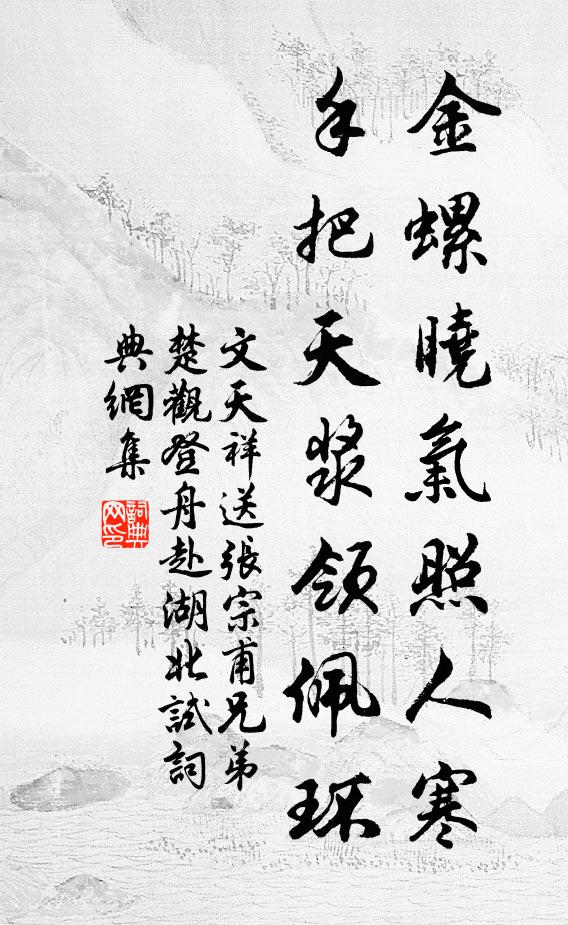 金螺曉氣照人寒
手把天漿領佩环
文天祥送張宗甫兄弟
楚觀登舟赴湖北試詞
典網集
詞典
网印